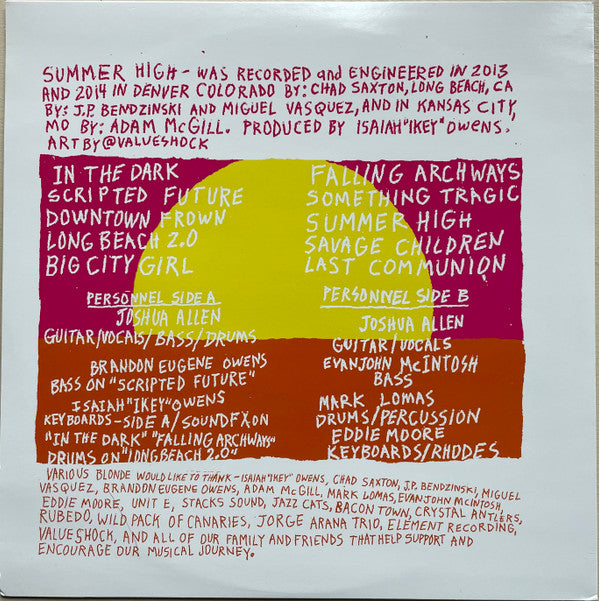 SUMMER HIGH - WAS RECORDED and ENGINEERED IN 2013
AND 2014 IN DENVER COLORADO BY: CHAD SAXTON, LONG BEACH, CA
BY: J.P. BENDZINSKI AND MIGUEL VASQUEZ, AND IN KANSAS CITY,
MO BY: ADAM McGILL. PRODUCED BY ISAIAH "IKEY" OWENS.
ART BY @VALUESHOCK
IN THE DARK
SCRIPTED FUTURE
DOWNTOWN FROWN
LONG BEACH 2.0
BIG CITY GIRL
FALLING ARCHWAYS
SOMETHING TRAGIC
SUMMER HIGH
SAVAGE CHILDREN
LAST COMMUNION
PERSONNEL SIDE A
JOSHUA ALLEN
GUITAR/VOCALS/BASS/DRUMS
BRANDON EUGENE OWENS
BASS ON "SCRIPTED FUTURE"
ISAIAH "IKEY" OWENS
KEYBOARDS-SIDE A/SOUND FX ON
"IN THE DARK" "FALLING ARCHWAYS"
DRUMS ON "LONG BEACH 2.0"
PERSONNEL SIDE B
JOSHUA ALLEN
GUITAR/VOCALS
EVANJOHN McINTOSH
BASS
MARK LOMAS
DRUMS/PERCUSSION
EDDIE MOORE
KEYBOARDS/RHODES
VARIOUS BLONDE WOULD LIKE TO THANK - ISAIAH "IKEY" OWENS, CHAD SAXTON, J.P. BENDZINSKI, MIGUEL
VASQUEZ, BRANDON EUGENE OWENS, ADAM McGILL, MARK LOMAS, EVANJOHN McINTOSH,
EDDIE MOORE, UNIT E, STACKS SOUND, JAZZ CATS, BACON TOWN, CRYSTAL ANTLERS,
RUBEDO, WILD PACK OF CANARIES, JORGE ARANA TRIO, ELEMENT RECORDING,
VALUE SHOCK, AND ALL OF OUR FAMILY AND FRIENDS THAT HELP SUPPORT AND
ENCOURAGE OUR MUSICAL JOURNEY.